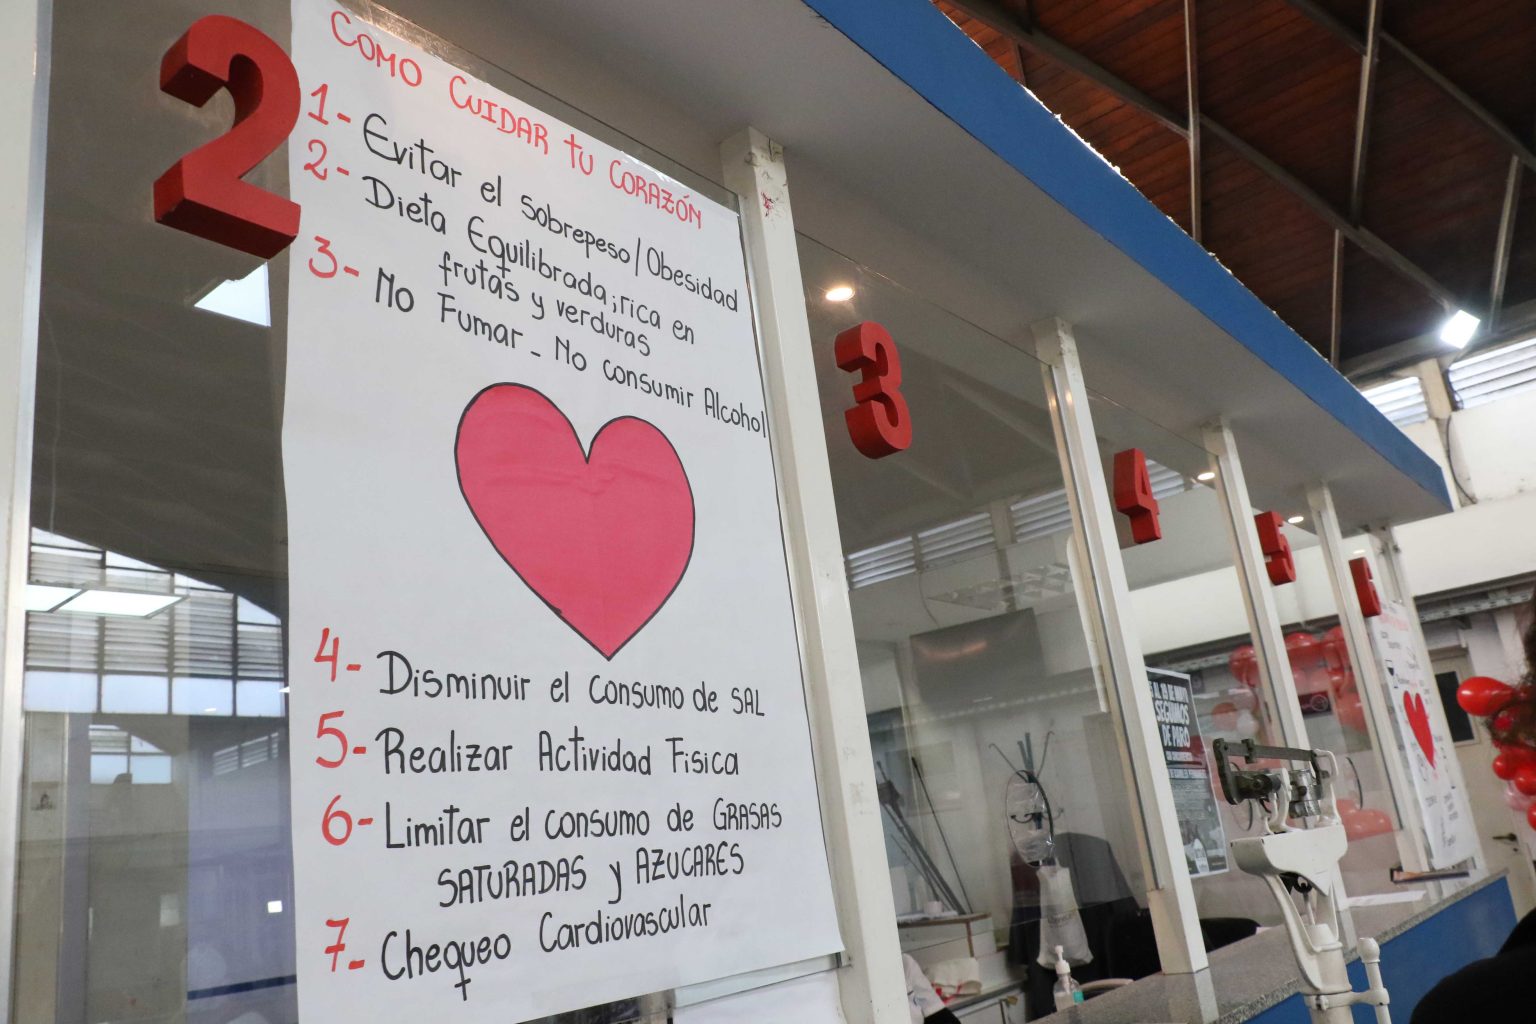 2
COMO CUIDAR tu CORAZÓN
1- Evitar el sobrepeso/Obesidad
2- Dieta Equilibrada; rica en
frutas y verduras
3- No Fumar - No consumir Alcohol
4- Disminuir el consumo de SAL
5- Realizar Actividad Fisica
6- Limitar el consumo de GRASAS
SATURADAS y AZUCARES
7- Chequeo Cardiovascular
3
4
5
6
SEGUIMOS
DE PARO